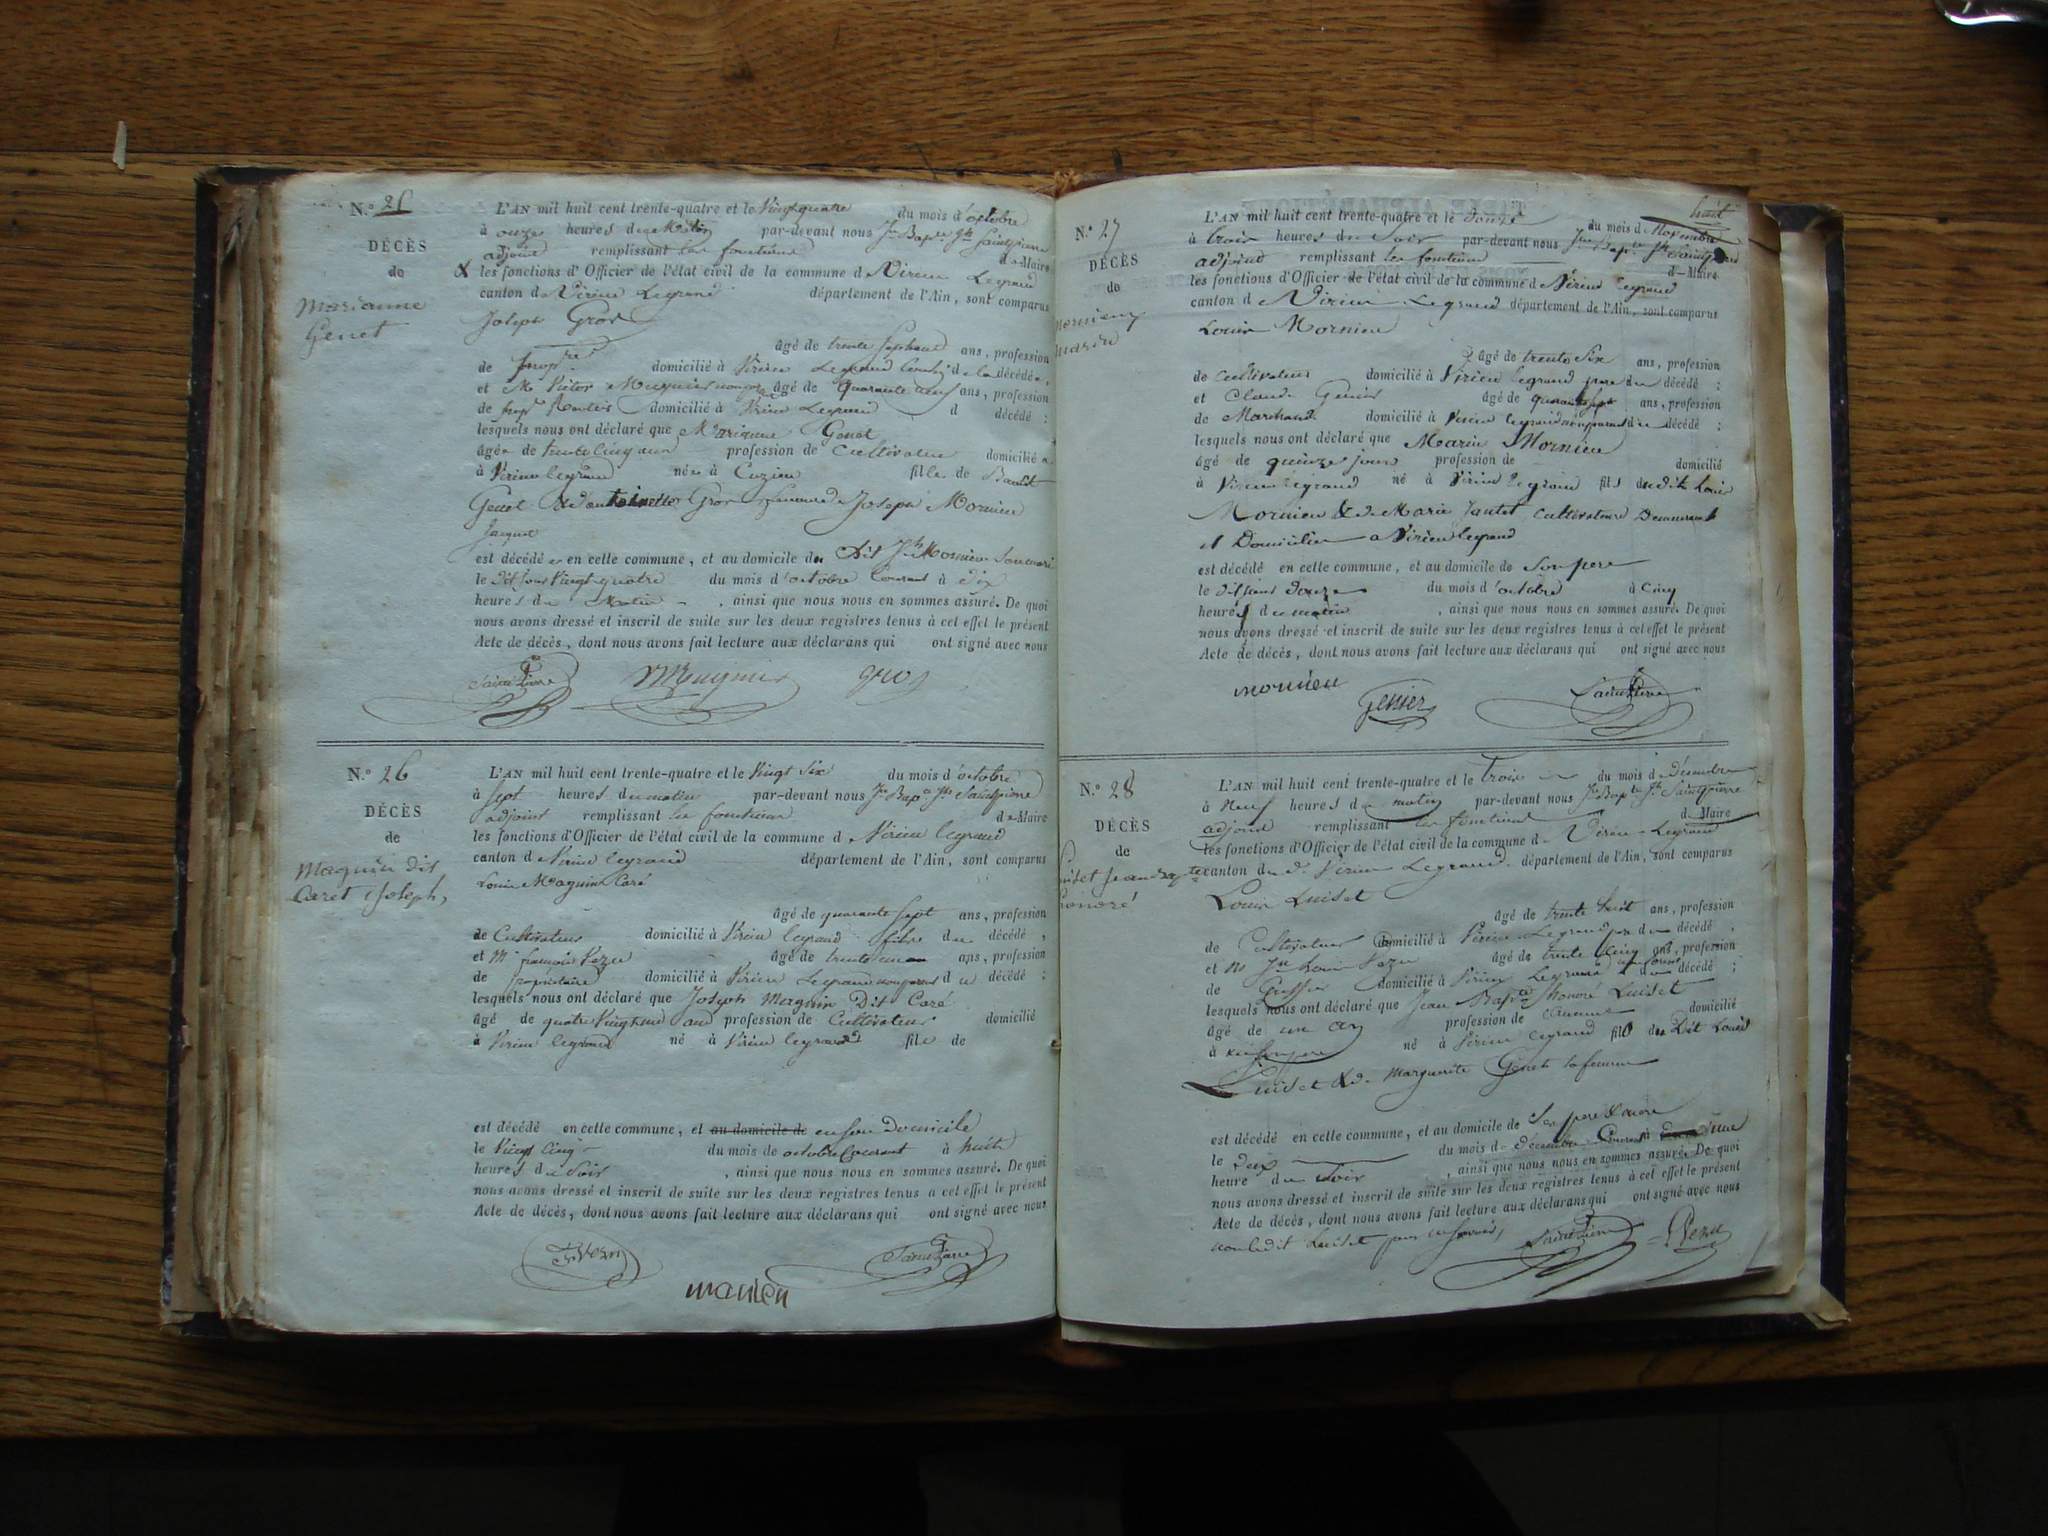 N.° 25
DÉCÈS
de
Marianne
Genet
L'AN mil huit cent trente-quatre et le Vingt quatre du mois d'octobre
à onze heures du Matin par-devant nous Jn Bapte Jh Saintpierre
adjoint remplissant les fonctions de Maire
les fonctions d'Officier de l'état civil de la commune de Virieu Legrand
canton de Virieu Legrand département de l'Ain, sont comparus
Joseph Gros
âgé de trente sept ans, profession
de propre domicilié à Virieu Legrand de la décédée,
et Mr Victor Mugnier âgé de quarante neuf ans, profession
de domicilié à Virieu Legrand d décédé :
lesquels nous ont déclaré que Marianne Genet
âgée de trente cinq ans profession de Cultivateur domicilié
à Virieu legrand née à Cuzieu fille de Benoit
Genet & d'antoinette Gros femme de Joseph Mornieu
Jacquet
est décédée en cette commune, et au domicile du dit Jh Mornieu son mari
le dit jour Vingt quatre du mois d'octobre Courant à dix
heures du Matin , ainsi que nous nous en sommes assuré. De quoi
nous avons dressé et inscrit de suite sur les deux registres tenus à cet effet le présent
Acte de décès, dont nous avons fait lecture aux déclarans qui ont signé avec nous
SaintPierre Mugnier gros
N.° 26
DÉCÈS
de
Magnin dit
Caret Joseph
L'AN mil huit cent trente-quatre et le Vingt Six du mois d'octobre
à Sept heures du matin par-devant nous Jn Bapte Jh Saintpierre
adjoint remplissant les fonctions de Maire
les fonctions d'Officier de l'état civil de la commune d Virieu legrand
canton d Virieu legrand département de l'Ain, sont comparus
Louis Magnin Caré
âgé de quarante Sept ans, profession
de Cultivateur domicilié à Virieu legrand fils du décédé,
et Mr françois Vezu âgé de trente un ans, profession
de propriétaire domicilié à Virieu Legrand non parent du décédé :
lesquels nous ont déclaré que Joseph Magnin Dit Caré
âgé de quatre Vingt un ans profession de Cultivateur domicilié
à Virieu legrand né à Virieu legrand fils de
est décédé en cette commune, et au domicile de en son Domicile
le Vingt Cinq du mois de octobre Courant à huit
heures du Soir , ainsi que nous nous en sommes assuré. De quoi
nous avons dressé et inscrit de suite sur les deux registres tenus à cet effet le présent
Acte de décès, dont nous avons fait lecture aux déclarans qui ont signé avec nous
F. Vezu SaintPierre
huit
N.° 27
DÉCÈS
de
Mornieux
Marie
L'AN mil huit cent trente-quatre et le Douze du mois d Novembre
à trois heures du Soir par-devant nous Jn Bapte Jh Saintpierre
adjoint remplissant les fonctions d Maire
les fonctions d'Officier de l'état civil de la commune d Virieu legrand
canton d Virieu Legrand département de l'Ain, sont comparus
Louis Mornieu
âgé de trente Six ans, profession
de Cultivateur domicilié à Virieu legrand pere du décédé :
et Claude Genier âgé de quarante sept ans, profession
de Marchand domicilié à Virieu legrand non parent du décédé :
lesquels nous ont déclaré que Marie Mornieu
âgé de quinze jours profession de domicilié
à Virieu legrand né à Virieu legrand fils dudit Louis
Mornieu & de Marie Jantet Cultivateurs Demeurant
et Domiciliés a Virieu legrand
est décédé en cette commune, et au domicile de Son pere
le dit jour Douze du mois d'octobre à Cinq
heures du matin , ainsi que nous nous en sommes assuré. De quoi
nous avons dressé et inscrit de suite sur les deux registres tenus à cet effet le présent
Acte de décès, dont nous avons fait lecture aux déclarans qui ont signé avec nous
mornieu Genier SaintPierre
N.° 28
DÉCÈS
de
Luiset Jean Bapte
honoré
L'AN mil huit cent trente-quatre et le Trois du mois d Décembre
à Neuf heures du matin par-devant nous Jn Bapte Jh Saintpierre
adjoint remplissant les fonctions d Maire
les fonctions d'Officier de l'état civil de la commune d Virieu-Legrand
canton du d. Virieu Legrand département de l'Ain, sont comparus
Louis Luiset
âgé de trente huit ans, profession
de Cultivateur domicilié à Virieu Legrand pere du décédé,
et Mr Jn Louis Vezu âgé de trente Cinq ans, profession
de Greffier domicilié à Virieu Legrand du décédé :
lesquels nous ont déclaré que Jean Bapte honoré Luiset
âgé de un an profession de aucune domicilié
à né à Virieu legrand fils du Dit Louis
Luiset & de Marguerite Genet sa femme
est décédé en cette commune, et au domicile de Ses pere & mere
le deux du mois de décembre Courant à une
heure du Soir , ainsi que nous nous en sommes assuré. De quoi
nous avons dressé et inscrit de suite sur les deux registres tenus à cet effet le présent
Acte de décès, dont nous avons fait lecture aux déclarans qui ont signé avec nous
non ledit Luiset pour SaintPierre Vezu